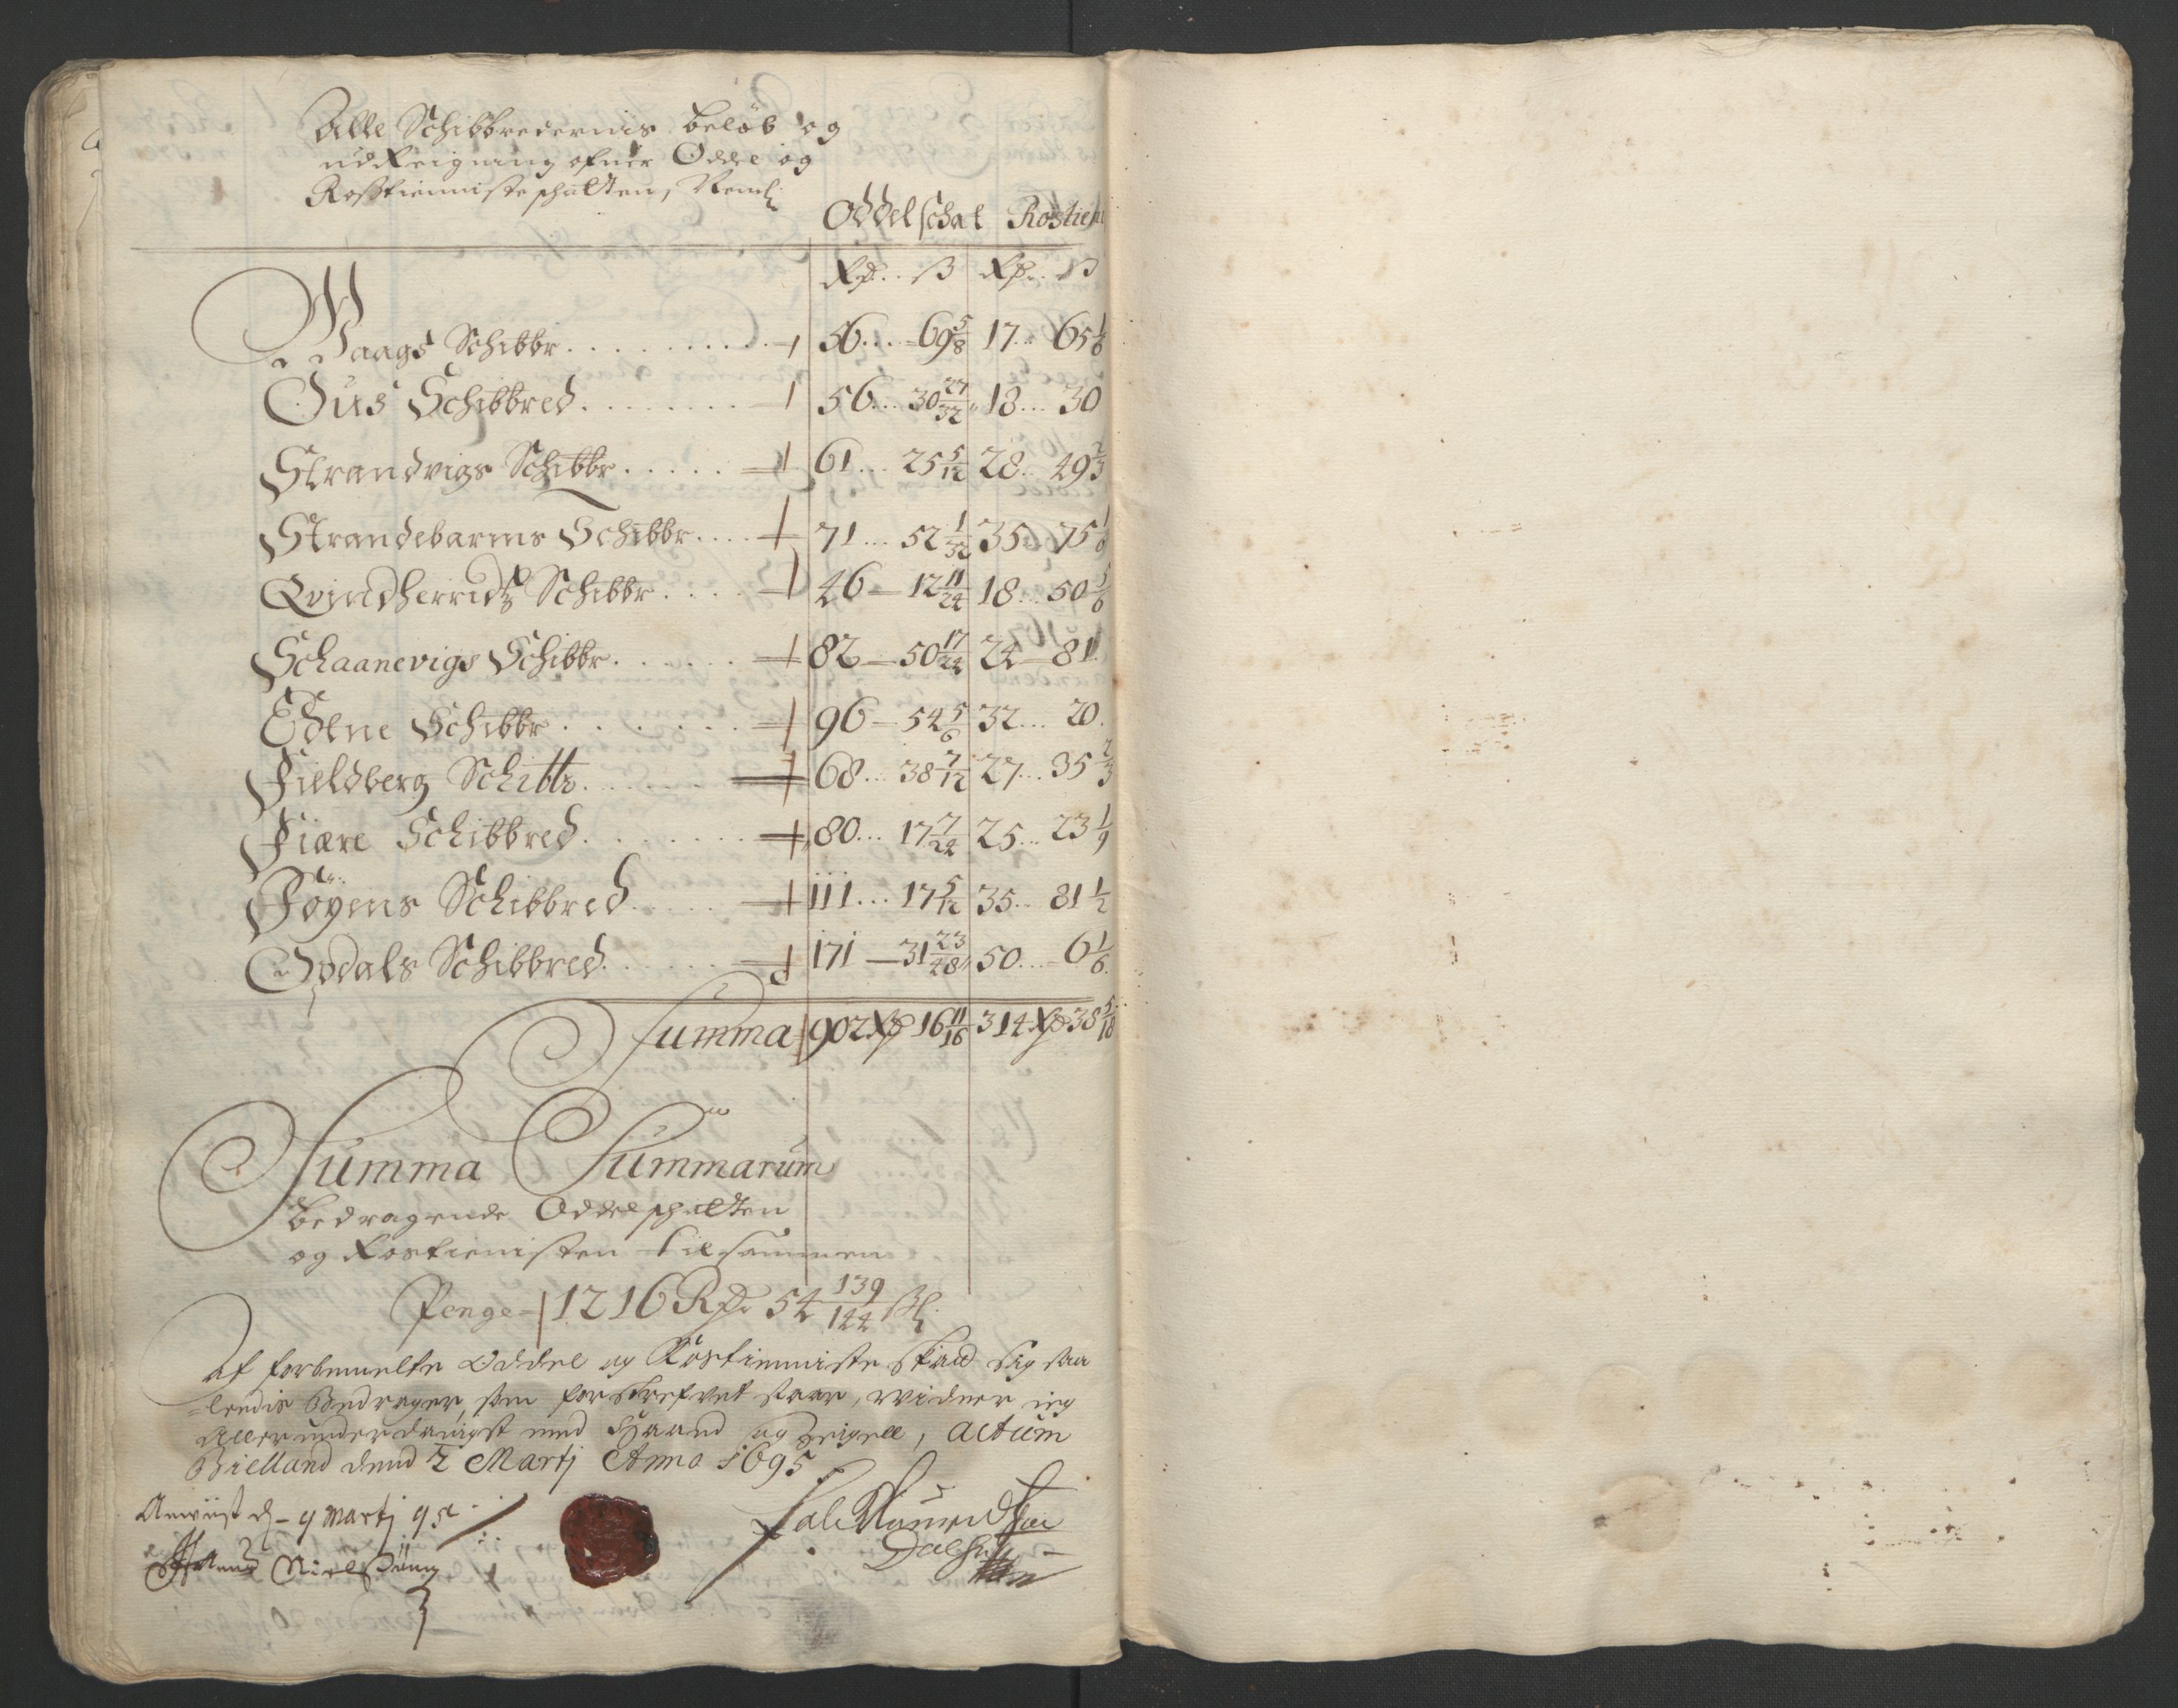 Alle Schibbredernis beløb og
udReigning ofver Oddel og
Rosstienniste schatten, Neml:
Oddel schat Rostien
Rd. ß Rd. ß
Waags Schibbr. 56 69 5/8 17 65 1/6
Ous Schibbred 56 30 27/32 18 30
Strandvigs Schibbr. 61 25 5/12 28 49 2/3
Strandebarms Schibbr. 71 52 1/32 35 75 1/6
Qvindherridtz Schibbr. 46 12 11/24 18 50 5/6
Schaanevigs Schibbr. 82 50 17/24 24 81
Edene Schibbr 96 54 5/6 32 20
Fieldberg Schibbr. 68 38 7/12 27 35 2/3
Fiære Schibbred 80 17 7/24 25 23 1/9
Føyens Schibbred 111 17 5/12 35 81 1/2
Opdals Schibbred 171 31 23/48 50 6 1/6
Summa 902 Rd 16 11/16 314 Rd 38 5/18
Summa Summarum
bedragende Oddelschatten
og Rostienisten tilsammen
Penge 1216 Rdr 54 139/144 ßl.
At forbemelte Oddel og Rostienniste Skatt sig saa
=ledis Bedrager, som forskrefvet staar, widner ieg
Allerunderdanigst med Haand og Zeigell, Actum
Bielland dend 2 Martj Anno 1695
Anviist d. 9 martj 95